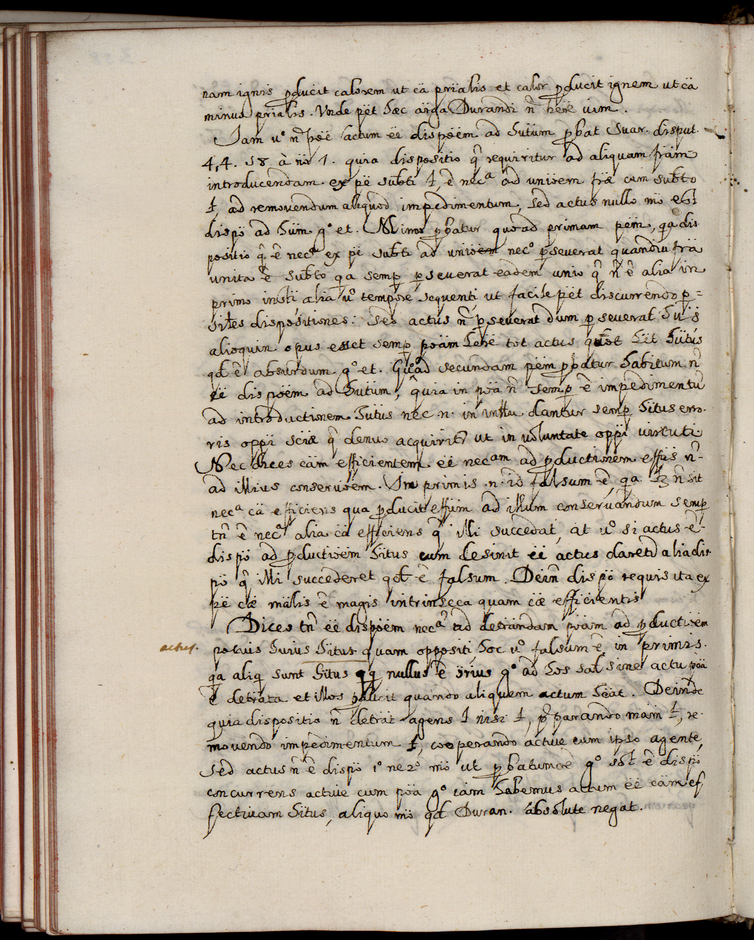 nam ignis pducit calorem ut cã prĩalis et calor pducit ignem ut cã
minus prĩalis. Unde pẽt hæc ãrga Durandi ñ hẽre uim.
Iam uº ñ hẽe actum ẽẽ dispõem ad hĩtum pbat Suar. disput.
44. s 8 à nº 1. quia dispositio q̃ requiritur ad aliquam frãm
introducendam ex pẽ subti t, ẽ necª ad unioem fræ cum subto
t, ad remouendum aliquod impedimentum, sed actus nullo mõ est
dispõ ad hĩum gº et. Minor pbatur quoad primam pẽm, qa dis
positio q̃ ẽ necª ex pẽ subti ad unioem necº pseuerat quandiu frã
unita ẽ subto qa semp pseuerat eadem unio q̃ ñ ẽ alia in
primo insti alia uº tempore sequenti ut facile pẽt discurrendo p
sĩtes dispositiones: Sed actus ñ pseuerat dum pseuerat hĩus
alioquin opus esset semp põam hẽre tot actus quot hẽt hĩtus
qd ẽ absurdum gº et. Quoad secundam pẽm pbatur habitum ñ
ẽẽ dispõem ad hĩtum, quia in põa ñ semp ẽ impedimentũ
ad introductionem hĩtus nec n. in inttu dantur semp hĩtus erro
ris oppi sciæ q̃ denuo acquirit, ut in uoluntate oppi uirtuti
Nec dices cãm efficientem ẽẽ necam ad pductionem effis ñ
ad illius conseruõem. Imprimis n. id falsum ẽ qa lz ñ sit
necª cã efficiens qua pducit effũm ad illum conseruandum semp
tñ ẽ necª alia cã efficiens q̃ illi succedat, at uº si actus ẽ
dispõ ad pductioem hĩtus cum desinit ẽẽ actus daretũ alia dis
põ q̃ illi succederet qd ẽ falsum. Dein dispõ requisita ex
pẽ cæ mãlis ẽ magis intrinseca quam cæ efficientis
Dices tñ ẽẽ dispõem necª ad detrãndam põam ad pductioem
actus. potius huius hĩtus quam oppositi hoc uº falsum ẽ in primis.
qa aliq sunt hĩtus qq nullus ẽ õrius gº ad hos sal sine actu põa
ẽ detrata et illos pducit quando aliquem actum hẽat. Deinde
quia dispositio ñ detrãt agens t nisi t, pparando mãm t, re
mouendo impedimentum t, cooperando actiue cum ipso agente,
sed actus ñ ẽ dispõ 1º ne 2º mõ ut pbatum ẽ gº solũ ẽ dispõ
concurrens actiue cum põa gº iam habemus actum ẽẽ cãm ef
fectiuam hĩtus, aliquo mõ qd Duran. absolute negat.